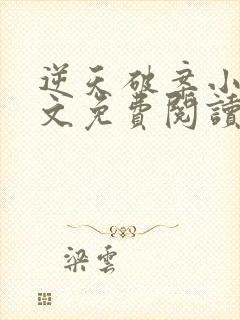 逆天破案小
文免費閱讀
梁雲